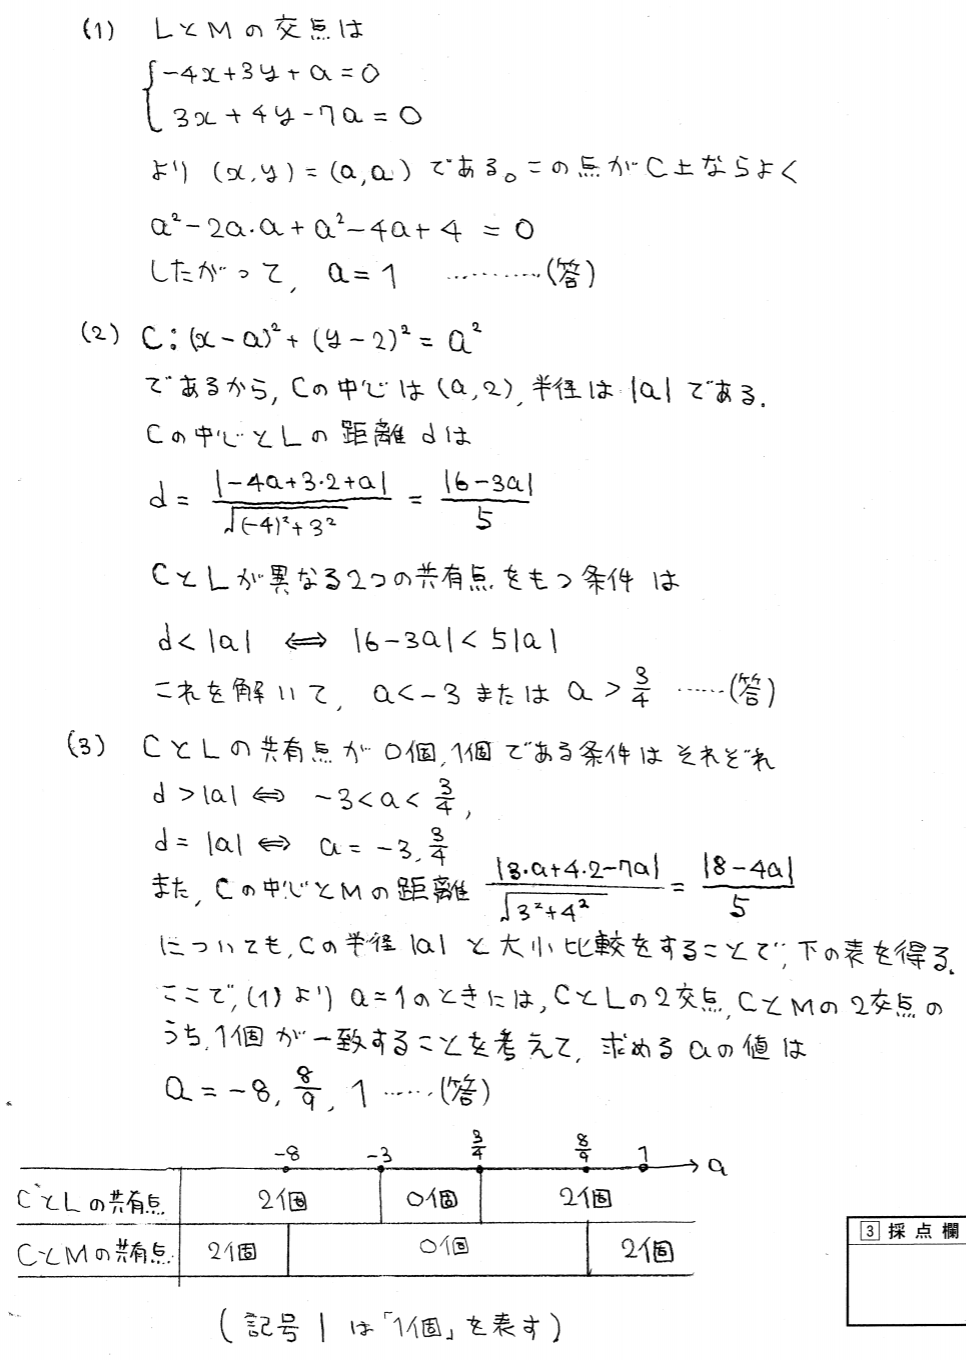 (1) LとMの交点は
-4x+3y+a=0
3x+4y-7a=0
より (x,y)=(a,a) である。この点がC上ならよく
a²-2a·a+a²-4a+4 = 0
したがって, a=1 …………(答)
(2) C:(x-a)²+(y-2)²=a²
であるから, Cの中心は(a,2), 半径は|a|である.
Cの中心とLの距離dは
d = |-4a+3·2+a| / √((-4)²+3²) = |6-3a| / 5
CとLが異なる2つの共有点をもつ条件は
d<|a| ⟺ |6-3a|<5|a|
これを解いて, a<-3 または a>3/4 ……(答)
(3) CとLの共有点が0個, 1個である条件はそれぞれ
d>|a| ⟺ -3<a<3/4,
d=|a| ⟺ a=-3, 3/4
また, Cの中心とMの距離 |3·a+4·2-7a| / √(3²+4²) = |8-4a| / 5
についても, Cの半径|a|と大小比較をすることで, 下の表を得る.
ここで, (1)より a=1のときには, CとLの2交点, CとMの2交点の
うち, 1個が一致することを考えて, 求めるaの値は
a=-8, 8/9, 1 ……(答)
-8 -3 3/4 8/9 1 a
CとLの共有点 2個 0個 2個
CとMの共有点 2個 0個 2個
(記号 | は「1個」を表す)
3 採点欄